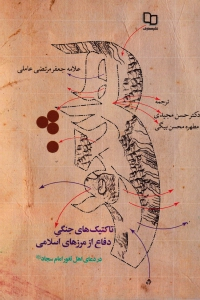 علامه جعفر مرتضی عاملی
ترجمه
دکتر حسن مجیدی
مطهره محسن بیگی
تاکتیک‌های جنگیِ
دفاع از مرزهای اسلامی
در دعای اهل ثغور امام سجاد